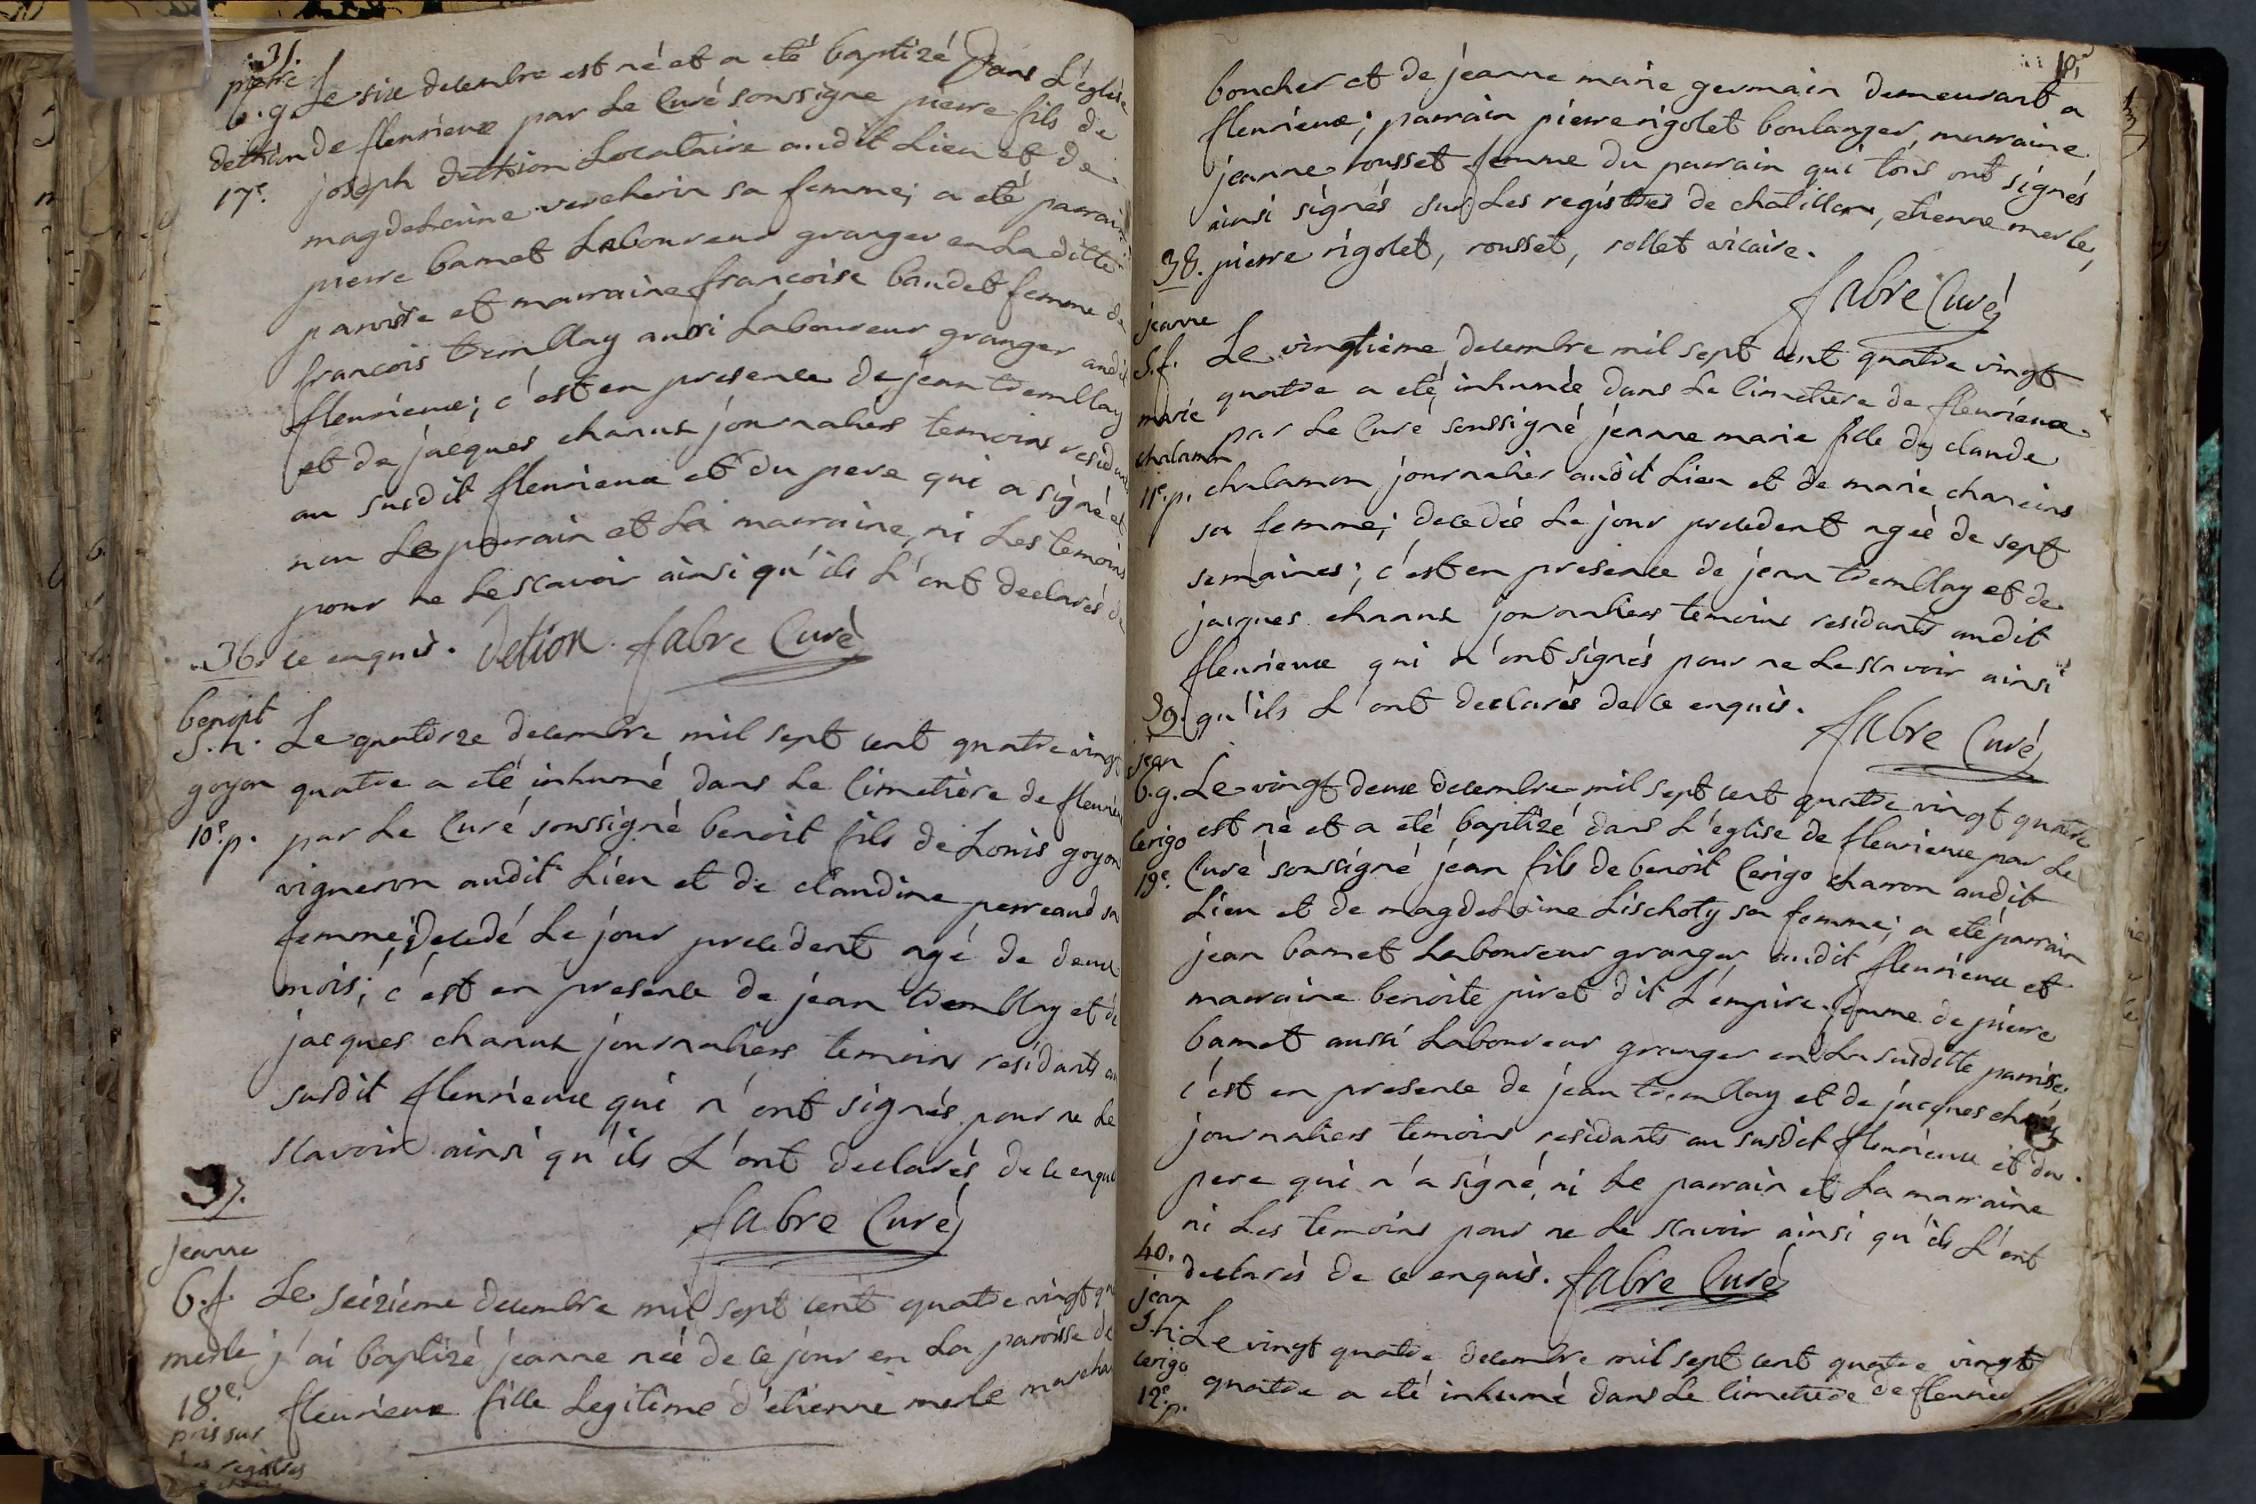 35.
pierre
b. g.
dethion
17e.
Le six decembre est né et a eté baptizé dans L'eglise
de fleurieux par Le Curé soussigné pierre fils de
joseph dethion Locataire audit Lieu et de
magdelaine vercherin sa femme; a eté parrain
pierre bamet Laboureur granger en La ditte
paroisse et marraine francoise baudet femme de
francois tremllay aussi Laboureur granger audit
fleurieux; c'est en presence de jean tremllay
et de jacques chanux journaliers temoins residants
au susdit fleurieux et du pere qui a signé et
non Le parrain et La marraine, ni Les temoins
pour ne Le scavoir ainsi qu'ils L'ont declarés de
ce enquis. Detion. fabre Curé
36.
benoit
S. h.
goyon
10e. p.
Le quatorze decembre mil sept cent quatre vingt
quatre a eté inhumé dans Le Cimetiere de fleurieux
par Le Curé soussigné benoit fils de Louis goyon
vigneron audit Lieu et de claudine perreaud sa
femme; decedé Le jour precedent agé de deux
mois; c'est en presence de jean tremllay et de
jacques chanux journaliers temoins residants au
susdit fleurieux qui n'ont signés pour ne Le
scavoir ainsi qu'ils L'ont declarés de ce enquis
fabre Curé
37.
jeanne
b. f.
merle
18e.
pris sur
Les registres
Le seizieme decembre mil sept cent quatre vingt
j'ai baptizé jeanne née de ce jour en La paroisse de
fleurieux fille Legitime d'etienne merle marchand
boucher et de jeanne marie germain demeurant a
fleurieux; parrain pierre rigolet boulanger, marraine
jeanne rousset femme du parrain qui tous ont signés
ainsi signés sur Les registres de chatillon, etienne merle,
pierre rigolet, rousset, rollet vicaire.
fabre Curé
38.
jeanne
S. f.
marie
chalamon
11e. p.
Le vingtieme decembre mil sept cent quatre vingt
quatre a eté inhumée dans Le Cimetiere de fleurieux
par Le Curé soussigné jeanne marie fille de claude
chalamon journalier audit Lieu et de marie chareins
sa femme; decedée Le jour precedent agée de sept
semaines; c'est en presence de jean tremllay et de
jacques chanux journaliers temoins residants audit
fleurieux qui n'ont signés pour ne Le scavoir ainsi
qu'ils L'ont declarés de ce enquis.
fabre Curé
39.
jean
b. g.
Cerigo
19e.
Le vingt deux decembre mil sept cent quatre vingt quatre
est né et a eté baptizé dans L'eglise de fleurieux par Le
Curé soussigné jean fils de benoit Cerigo charron audit
Lieu et de magdelaine Lischoty sa femme; a eté parrain
jean bamet Laboureur granger audit fleurieux et
marraine benoite piret dit L'empire femme de pierre
bamet aussi Laboureur granger en La susditte paroisse
c'est en presence de jean tremllay et de jacques chanux
journaliers temoins residants au susdit fleurieux et du
pere qui n'a signé, ni Le parrain et La marraine
ni Les temoins pour ne Le scavoir ainsi qu'ils L'ont
declarés de ce enquis. fabre Curé
40.
jean
S. h.
Cerigo
12e. p.
Le vingt quatre decembre mil sept cent quatre vingt
quatre a eté inhumé dans Le Cimetiere de fleurieux